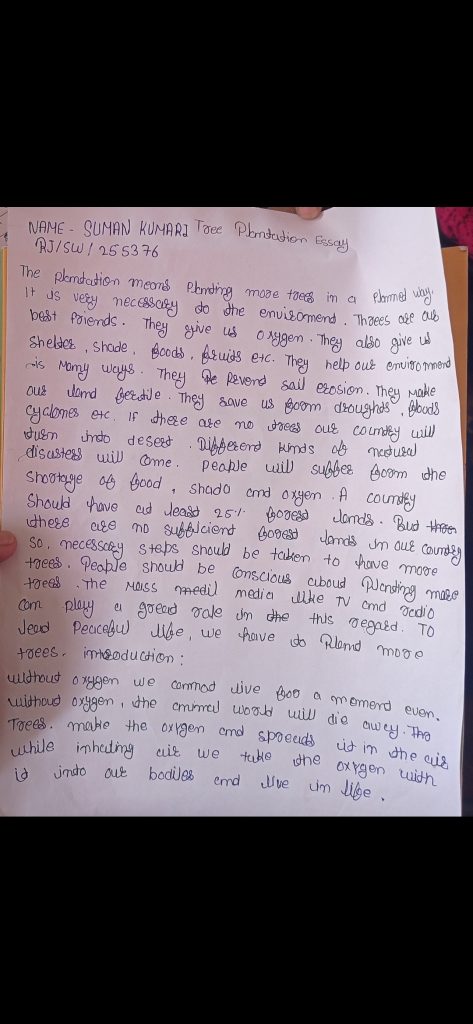 NAME - SUMAN KUMARI Tree Plantation Essay
RJ/SW/255376
The plantation means planting more trees in a planned way.
It is very necessary to the envirsomend. Threes are our
best friends. They give us oxygen. They also give us
shelter, shade, foods, fruits etc. They help our environmend
is many ways. They Pevend sail erosion. They make
our land fertile. They save us from droughts, floods
cyclones etc. If there are no trees our country will
turn into desert. Different kinds of natural
disasters will come. People will suffer from the
shortage of food, shado and oxgen. A country
should have at least 25% forest lands. But
there are no sufficient forest lands in our country
so, necessary steps should be taken to have more
trees. People should be conscious about planting more
trees. The mass media like TV and radio
can play a great role in this regard. To
lead peaceful life, we have to plant more
trees. introduction:
without oxygen we cannot live for a moment even.
without oxygen, the animal world will die away.
Trees. make the oxygen and spreads it in the air
while inhaling air we take the oxygen with
it into our bodies and live in life.